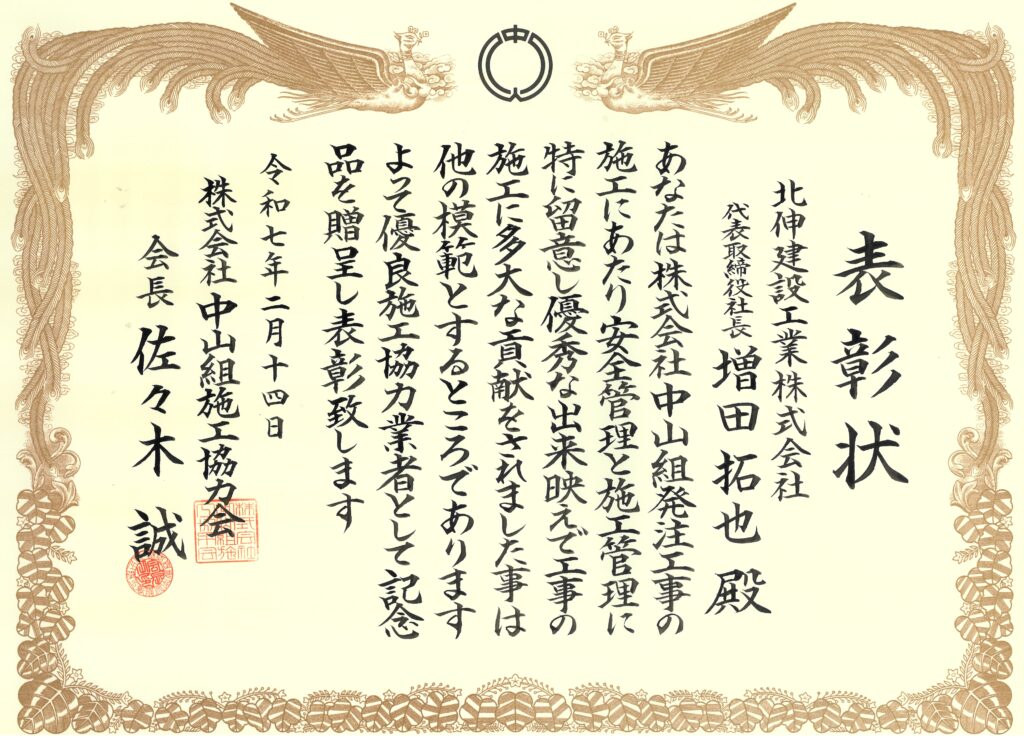 中
表彰状
北伸建設工業株式会社
代表取締役社長 増田拓也 殿
あなたは株式会社中山組発注工事の
施工にあたり安全管理と施工管理に
特に留意し優秀な出来映えで工事の
施工に多大な貢献をされました事は
他の模範とするところであります
よって優良施工協力業者として記念
品を贈呈し表彰致します
令和七年二月十四日
株式会社中山組施工協力会
会長 佐々木 誠